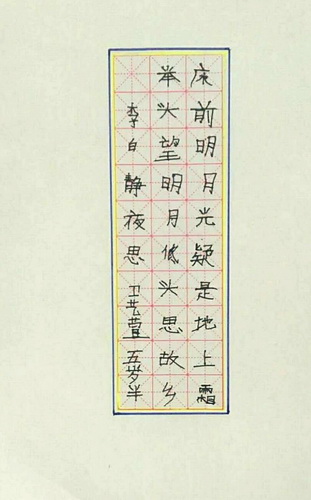 床前明月光疑是地上霜
举头望明月低头思故乡
李白静夜思卫艺萱五岁半